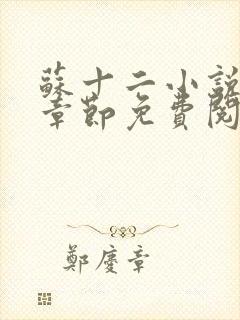 蘇十二小說
章節免費閱
鄭慶章